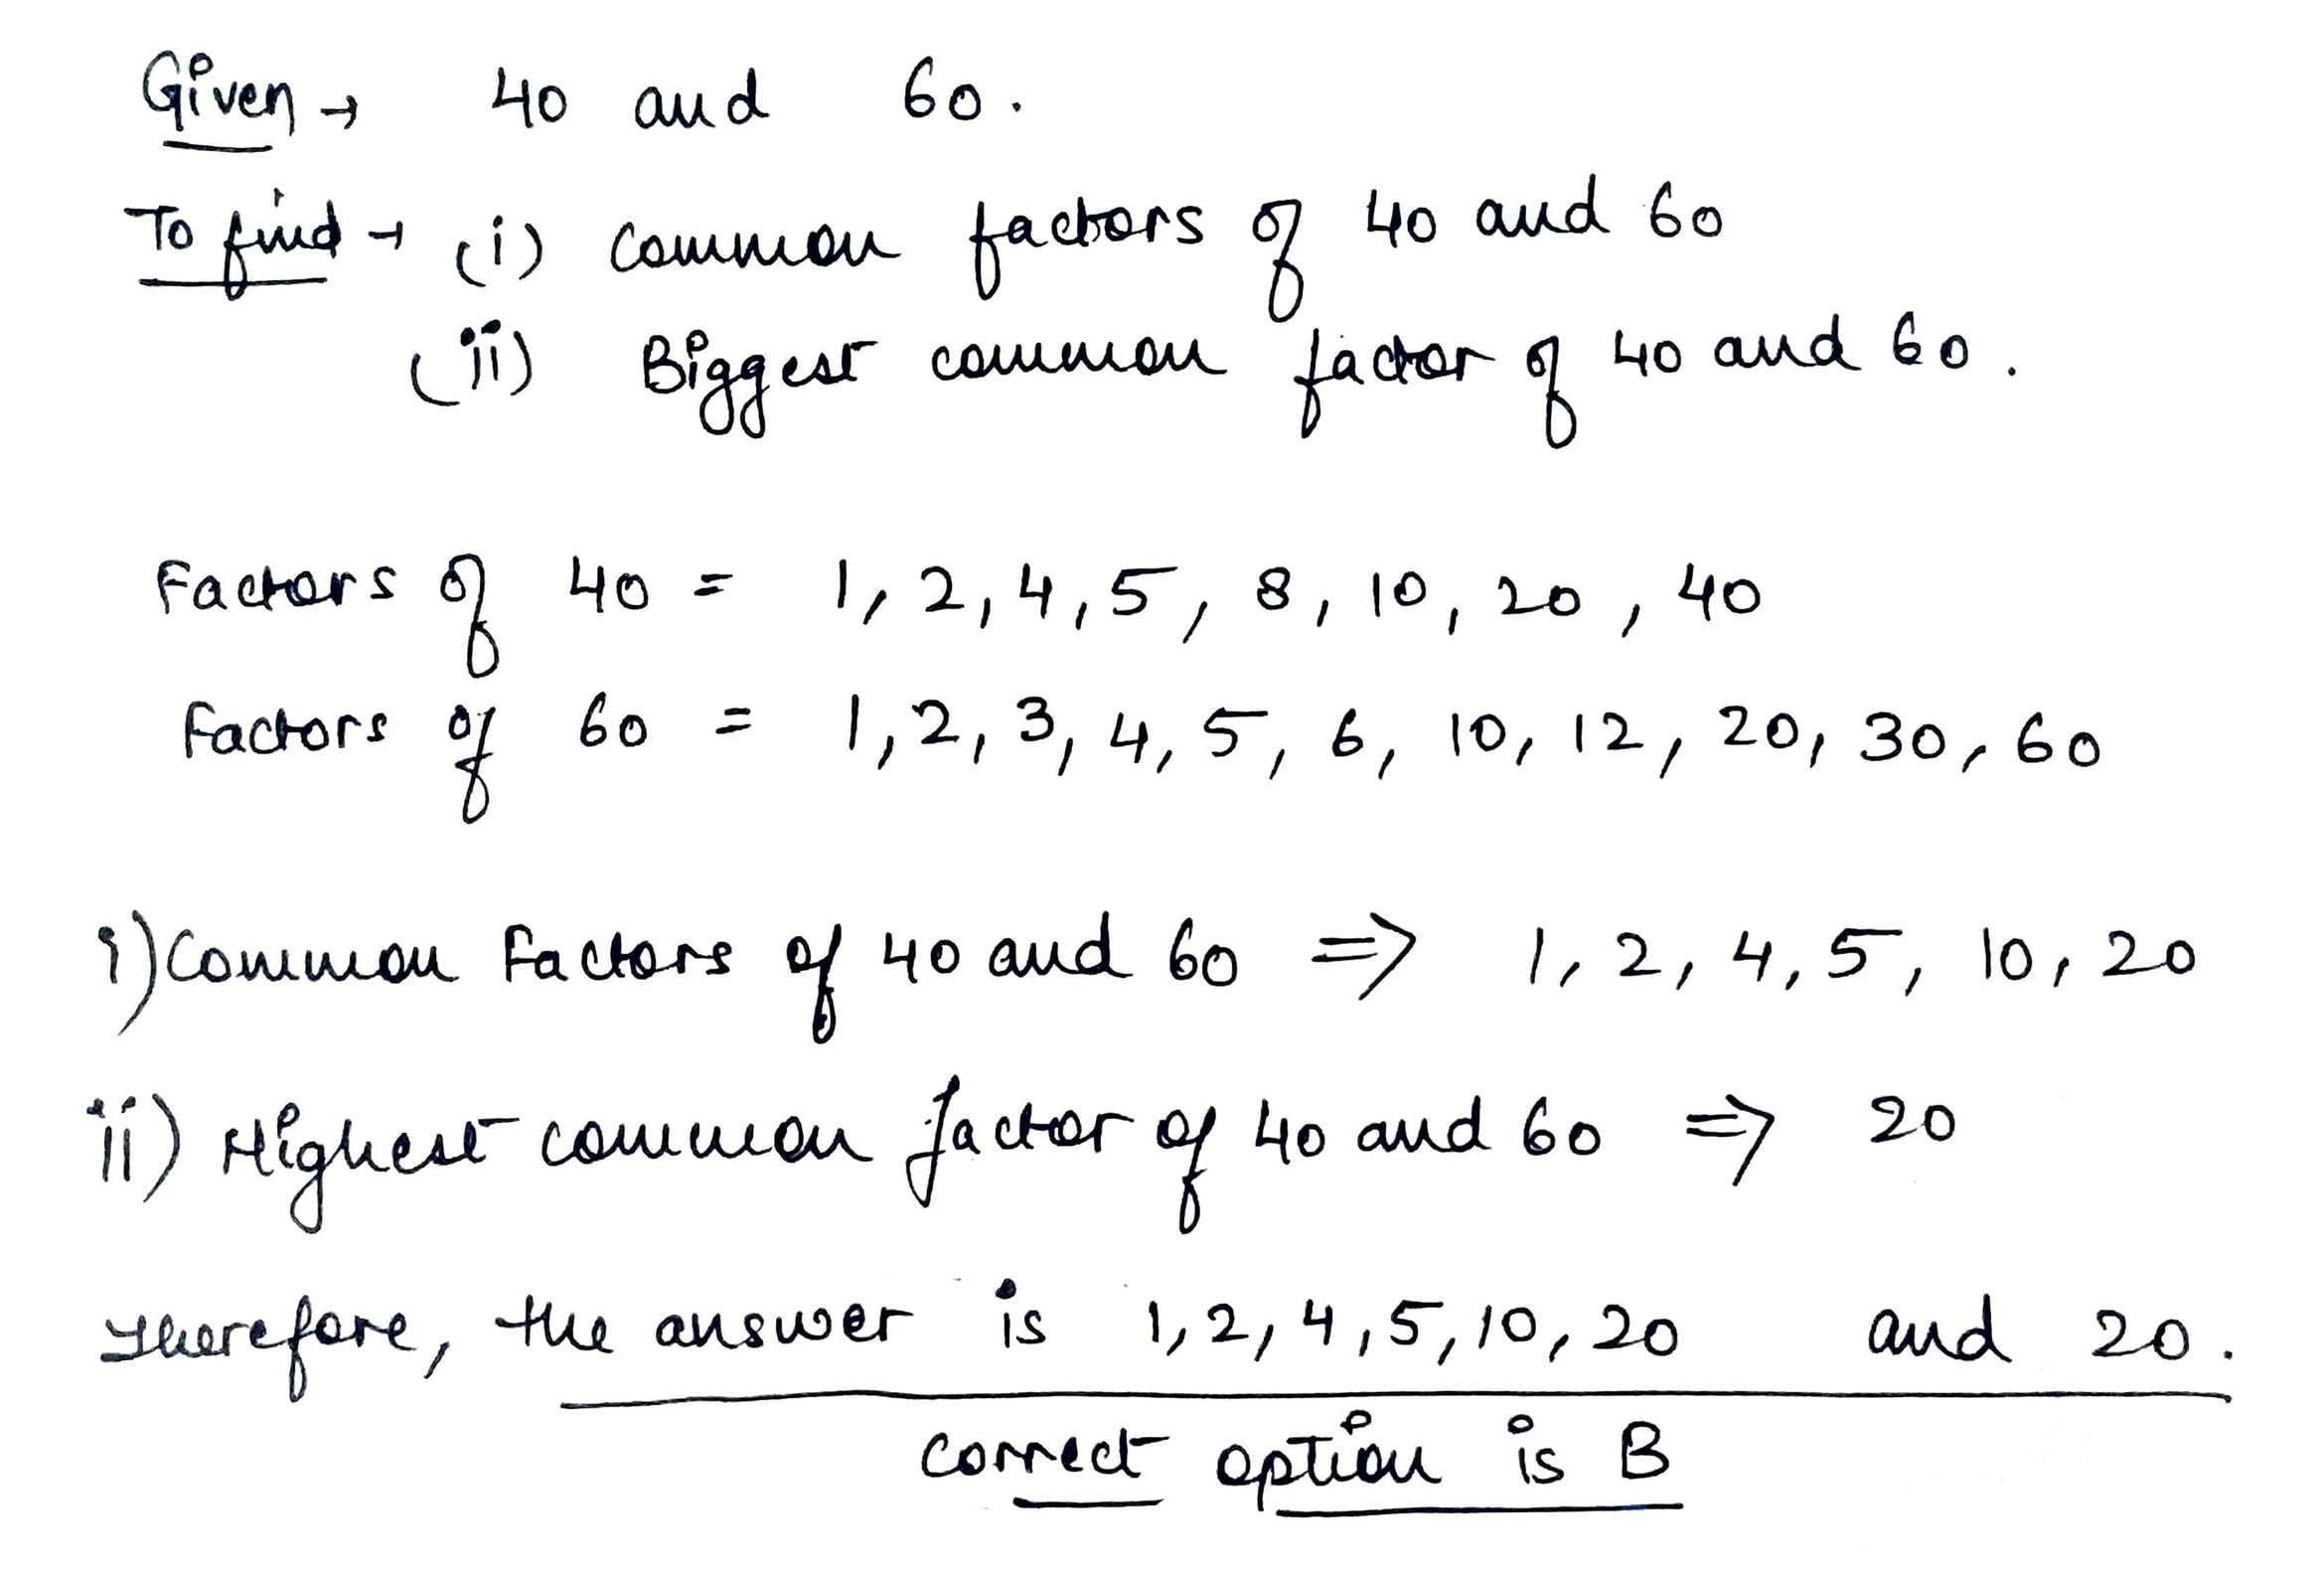 Given → 40 and 60.
To find → (i) Common factors of 40 and 60
(ii) Biggest common factor of 40 and 60.
Factors of 40 = 1, 2, 4, 5, 8, 10, 20, 40
Factors of 60 = 1, 2, 3, 4, 5, 6, 10, 12, 20, 30, 60
i) Common Factors of 40 and 60 ⇒ 1, 2, 4, 5, 10, 20
ii) Highest common factor of 40 and 60 ⇒ 20
Therefore, the answer is 1, 2, 4, 5, 10, 20 and 20.
Correct option is B